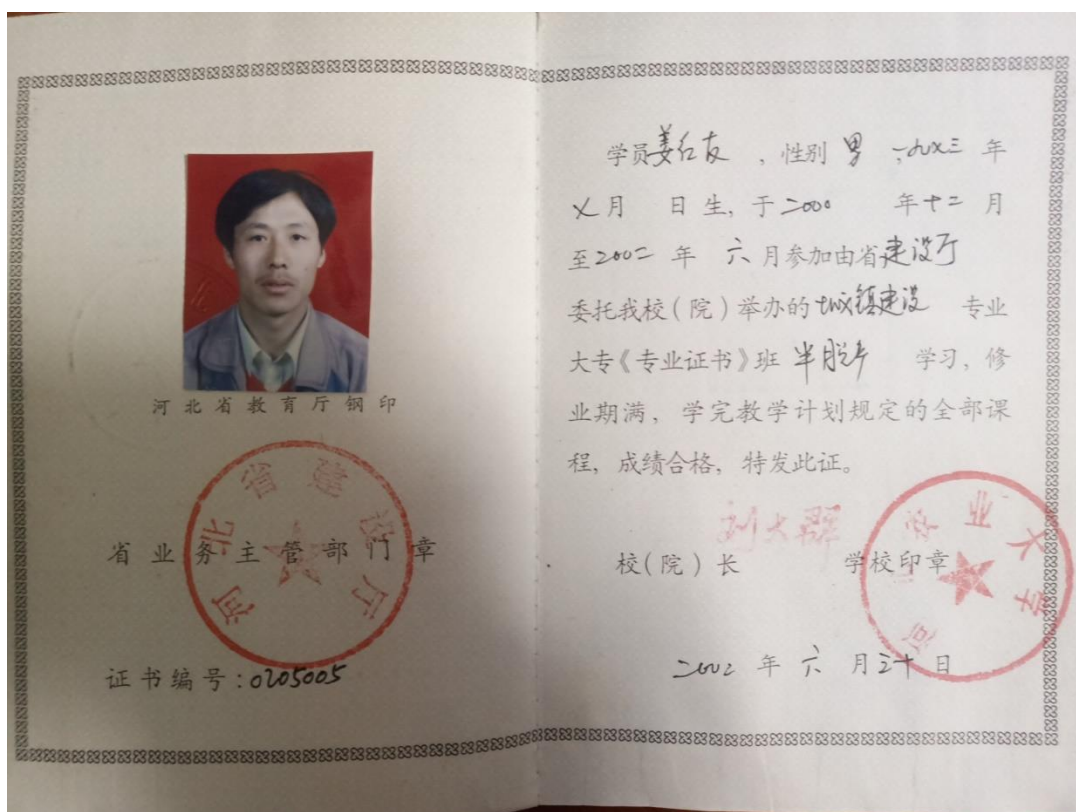 河北省教育厅钢印
河北省建设厅
省业务主管部门章
证书编号:0205005
学员姜红友 ,性别 男 ,一九七三 年
七月 日生,于二000 年十二 月
至2002 年 六 月参加由省建设厅
委托我校(院)举办的城镇建设 专业
大专《专业证书》班 半脱产 学习,修
业期满,学完教学计划规定的全部课
程,成绩合格,特发此证。
刘大群
校(院)长 学校印章
农业大学
二002 年 六 月三十日